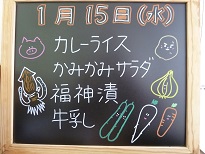 1月15日(水)
カレーライス
かみかみサラダ
福神漬
牛乳し